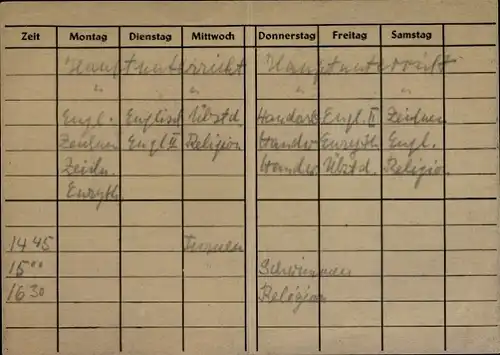 Zeit Montag Dienstag Mittwoch Donnerstag Freitag Samstag
Hauptunterricht Hauptunterricht
" " " "
Engl. Englisch Übstd. Handarb. Engl. II Zeichnen
Zeichnen Engl II Religion Handar Eurythm Engl.
Zeichn. Handar Übstd. Religion
Eurythm.
14 45 Turnen
15 00 Schwimmen
16 30 Religion